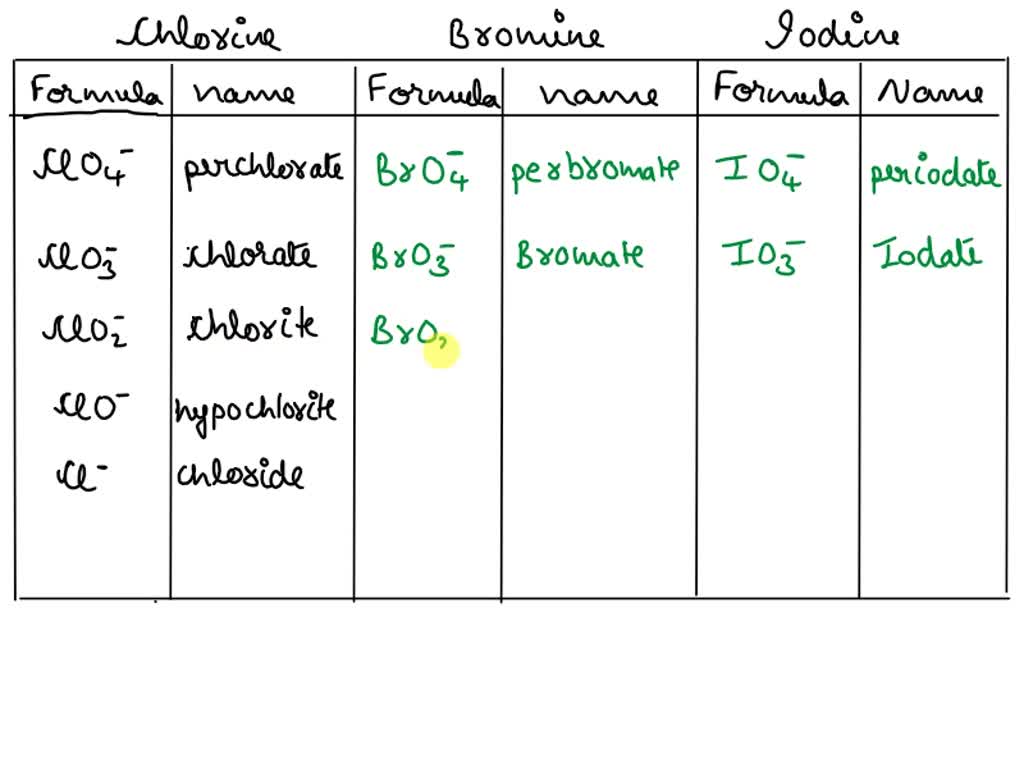 Chlorine Bromine Iodine
Formula name Formula name Formula Name
ClO₄⁻ perchlorate BrO₄⁻ perbromate IO₄⁻ periodate
ClO₃⁻ chlorate BrO₃⁻ Bromate IO₃⁻ Iodate
ClO₂⁻ chlorite BrO₂
ClO⁻ hypochlorite
Cl⁻ chloride